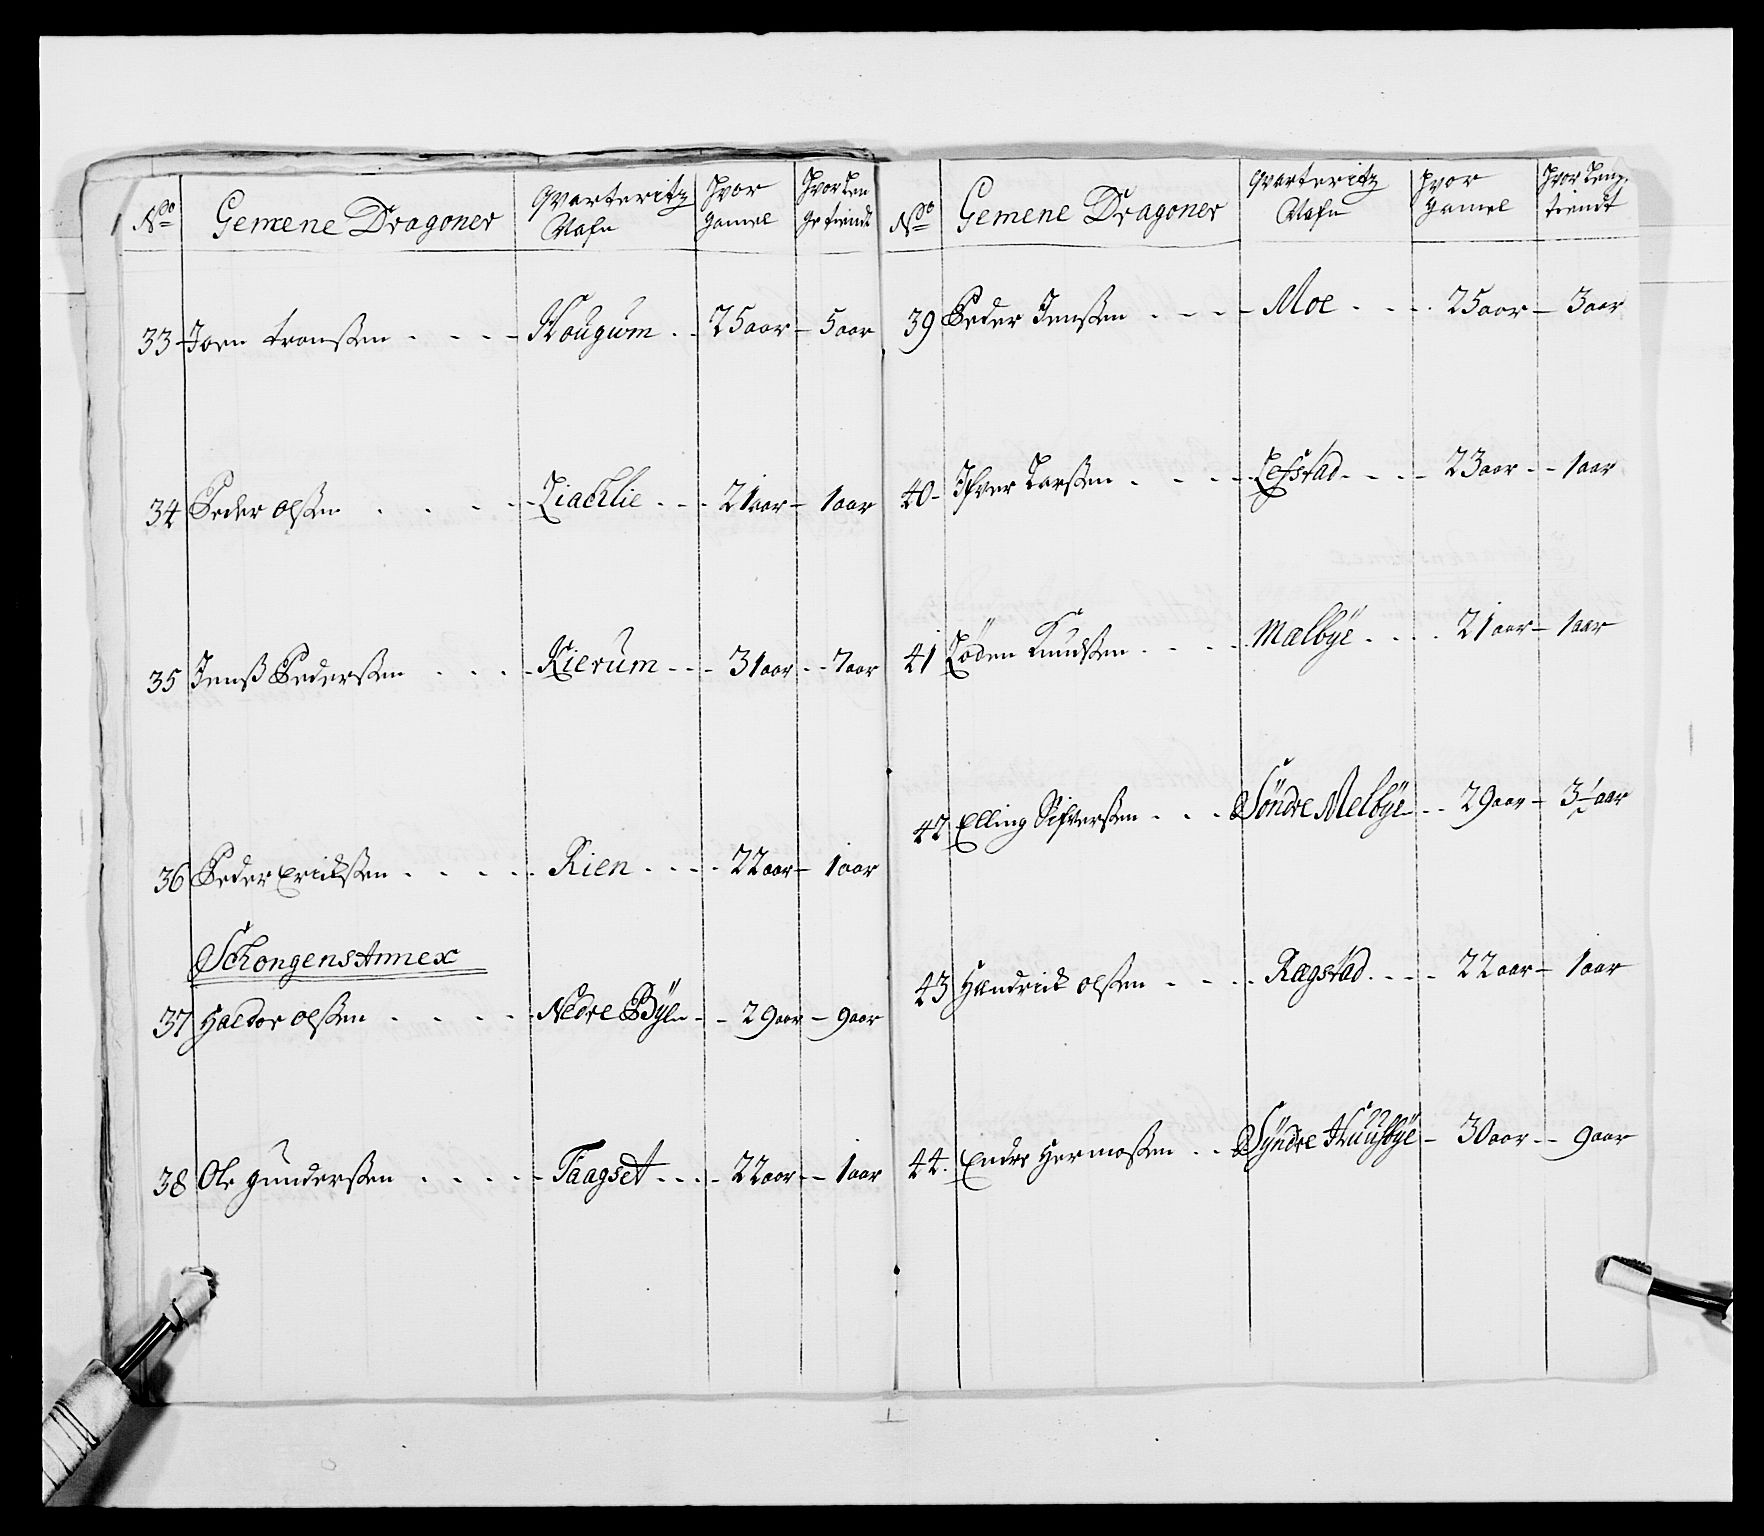 No Gemene Dragoner Qvarteritz Nafn Hvor gamel Hvor Len ge tiendt
33 Joen tronßen Hougum 25 aar 5 aar
34 Peder olßen Liachlie 21 aar 1 aar
35 Jenß Pederßen Kierum 31 aar 7 aar
36 Peder Erichßen Rien 22 aar 1 aar
Schongens Annex
37 Haldor olßen Nedre Bÿe 29 aar 9 aar
38 Ole gunderßen Taagset 22 aar 1 aar
No Gemene Dragoner Qvarteritz Nafn Hvor gamel Hvor Leng tiendt
39 Peder Jenßen Moe 25 aar 3 aar
40 Ifver Larßen Lefstad 23 aar 1 aar
41 Löden Knudßen Mælbÿe 21 aar 1 aar
42 Elling Sifverßen Söndre Melbÿe 29 aar 3½ aar
43 Hendrich olßen Rægstad 22 aar 1 aar
44 Endre Hermoßen Syndre Huusbÿe 30 aar 9 aar